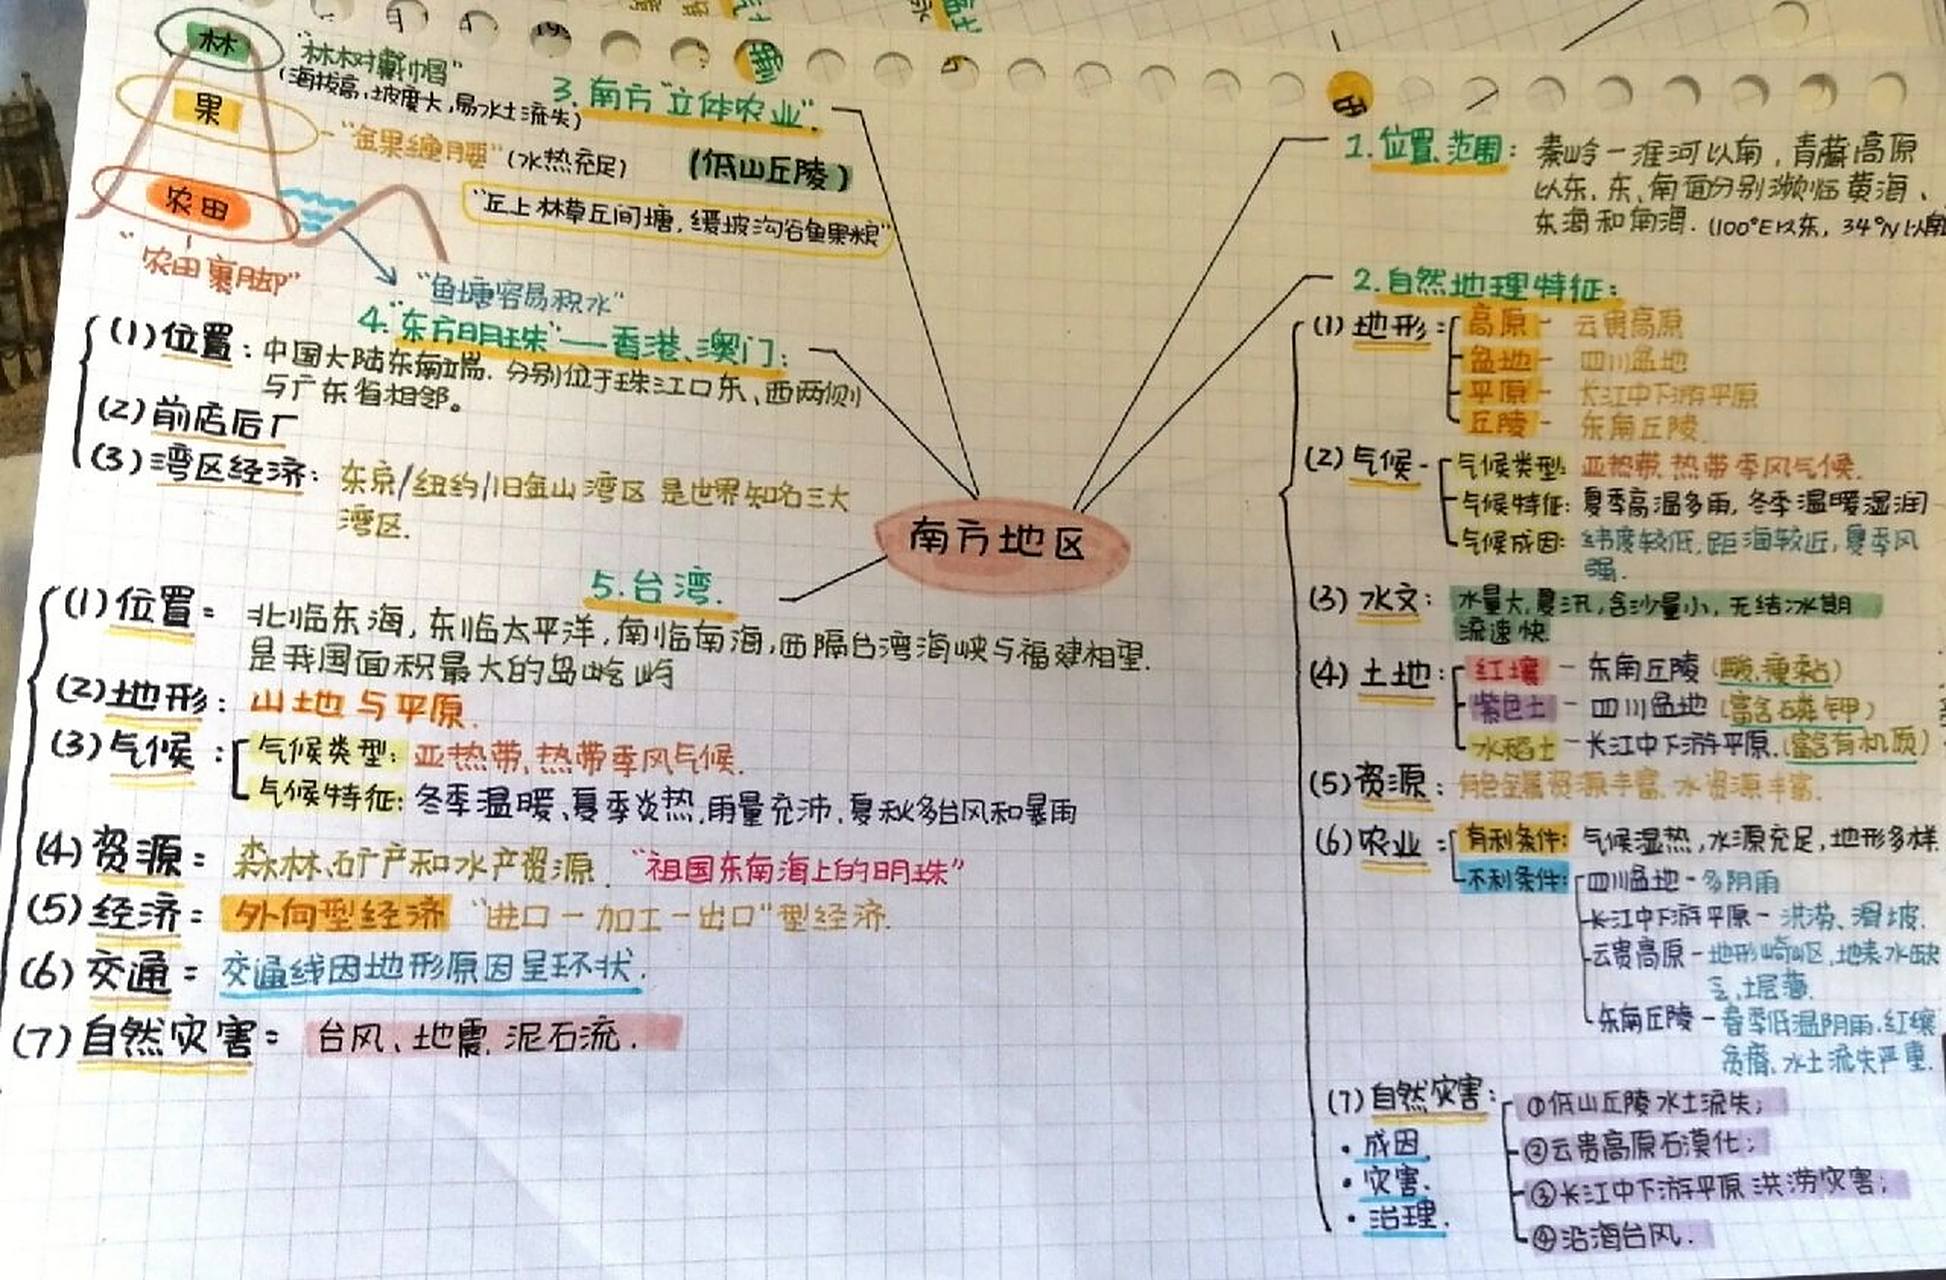 南方地区
1.位置、范围:
秦岭一淮河以南,青藏高原
以东、东、南面分别濒临黄海、
东海和南海.(100°E以东,34°N以南
2.自然地理特征:
(1)地形:
高原- 云贵高原
盆地- 四川盆地
平原- 长江中下游平原
丘陵- 东南丘陵.
(2)气候-
气候类型: 亚热带,热带季风气候.
气候特征: 夏季高温多雨,冬季温暖湿润
气候成因: 纬度较低,距海较近,夏季风
强.
(3)水文: 水量大,夏汛,含沙量小,无结冰期
流速快.
(4)土地:
红壤 - 东南丘陵(酸、瘦、黏)
紫色土 - 四川盆地(富含磷钾)
水稻土 - 长江中下游平原.(富含有机质)
(5)资源: 有色金属资源丰富、水资源丰富.
(6)农业:
有利条件: 气候湿热,水源充足,地形多样.
不利条件:
四川盆地-多阴雨
长江中下游平原- 洪涝、滑坡.
云贵高原-地形崎岖,地表水缺
乏,土层薄.
东南丘陵-春季低温阴雨.红壤
贫瘠、水土流失严重.
(7)自然灾害:
·成因.
·灾害.
·治理.
①低山丘陵水土流失;
②云贵高原石漠化;
③长江中下游平原洪涝灾害;
④沿海台风.
3.南方"立体农业".
(低山丘陵)
林
"林树戴帽"
(海拔高,坡度大,易水土流失)
果
-"金果缠腰"(水热充足)
农田
"农田裹脚"
"丘上林草丘间塘,缓坡沟谷鱼果粮"
"鱼塘容易积水"
4."东方明珠"——香港、澳门:
(1)位置: 中国大陆东南端.分别位于珠江口东、西两侧
与广东省相邻。
(2)前店后厂
(3)湾区经济: 东京/纽约/旧金山湾区 是世界知名三大
湾区.
5.台湾.
(1)位置: 北临东海,东临太平洋,南临南海,西隔台湾海峡与福建相望.
是我国面积最大的岛屹屿
(2)地形: 山地与平原.
(3)气候:
气候类型: 亚热带,热带季风气候.
气候特征: 冬季温暖、夏季炎热,雨量充沛,夏秋多台风和暴雨
(4)资源: 森林、矿产和水产资源. "祖国东南海上的明珠"
(5)经济: 外向型经济 "进口一加工一出口"型经济.
(6)交通: 交通线因地形原因呈环状.
(7)自然灾害: 台风、地震、泥石流.